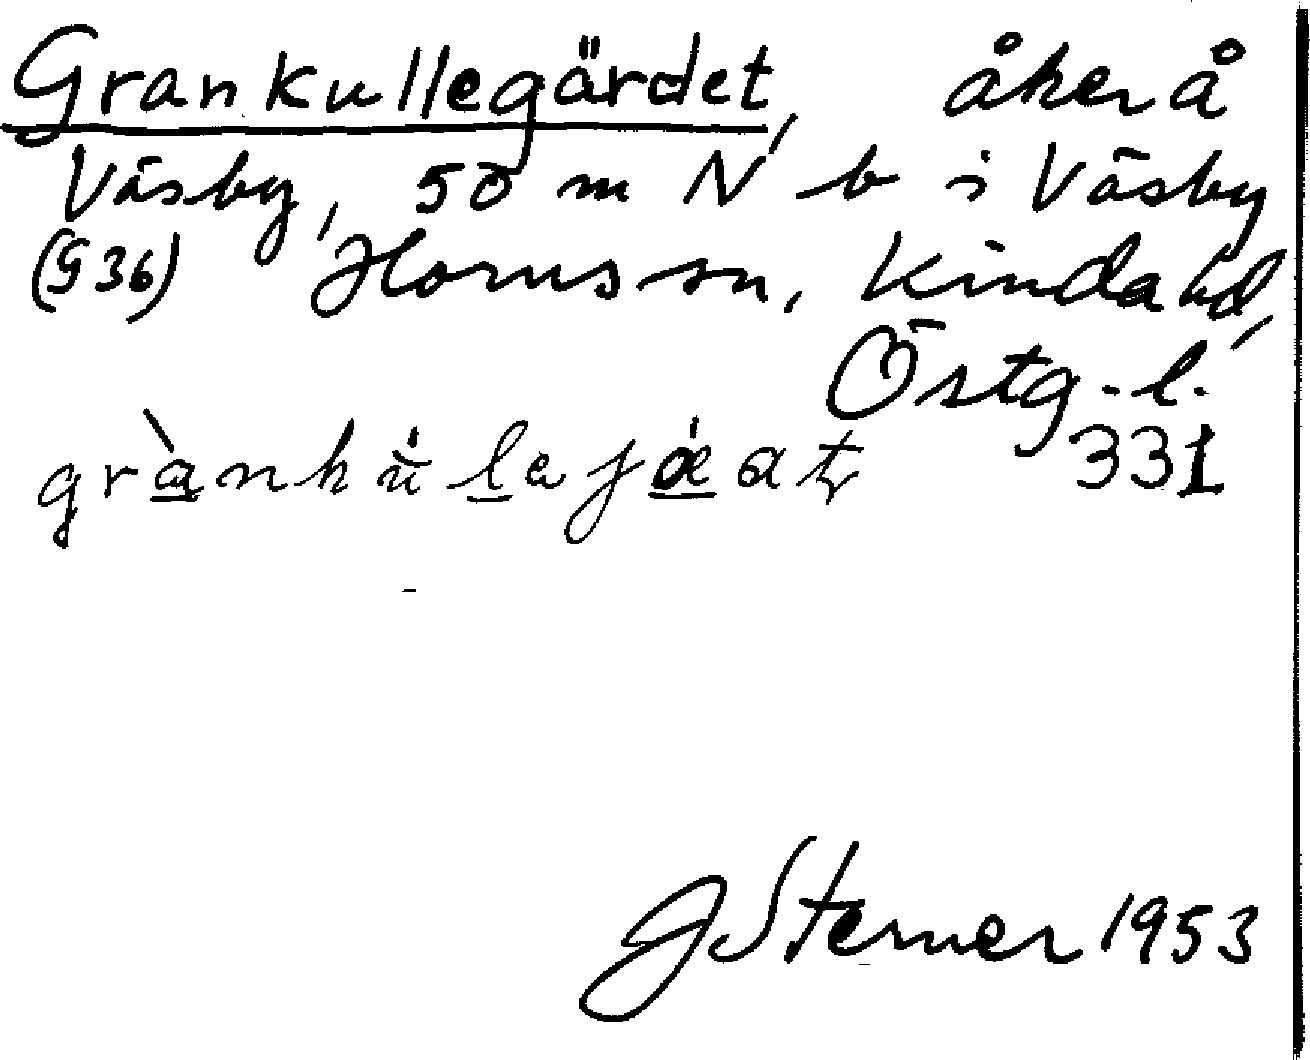 Grankullegärdet, åker å
Väsby, 50 m N b i Väsby
(§ 36) Horns sn, Kinda hd,
Östg.l.
grànku̇lejæ̇at 331
J Sterner 1953